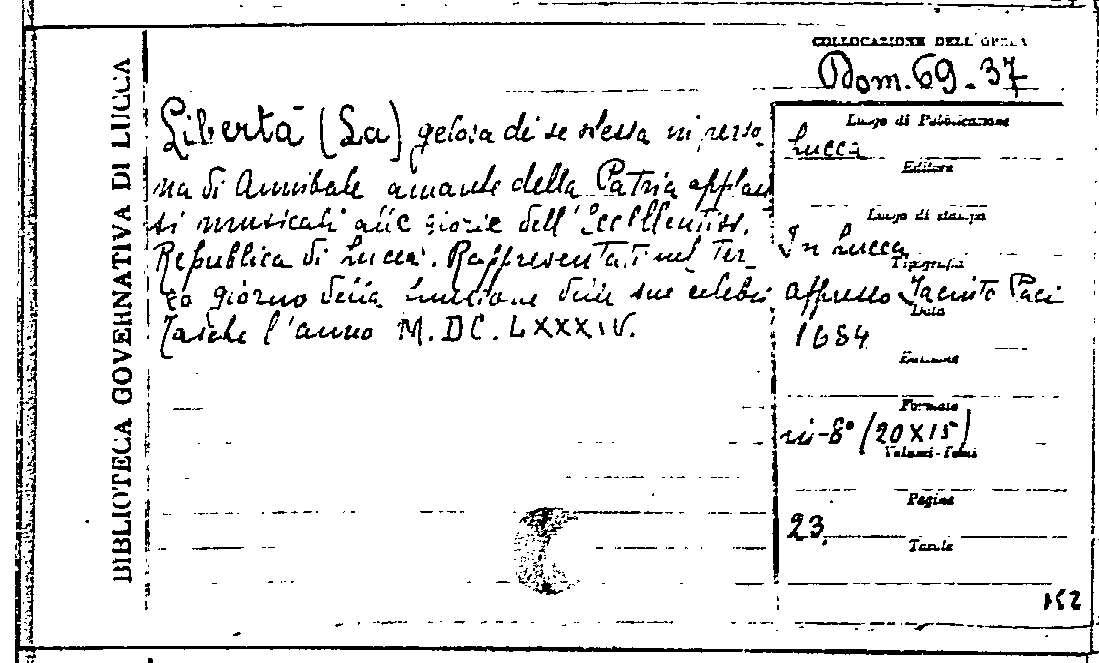 BIBLIOTECA GOVERNATIVA DI LUCCA
COLLOCAZIONE DELL'OPERA
Dom. 69. 37
Libertà (La) gelosa di se stessa in perso-
na di Annibale amante della Patria applau
si musicali alle glorie dell'Eccellentiss.
Republica di Lucca. Rappresentati nel Ter-
zo giorno della funzione delle sue celebri
Tasche l'anno M.DC.LXXXIV.
Luogo di Pubblicazione
Lucca
Editore
Luogo di stampa
In Lucca
Tipografia
appresso Jacinto Paci
Data
1684
Edizione
Formato
in-8° (20X15)
Volumi-Tomi
Pagine
23.
Tavole
152